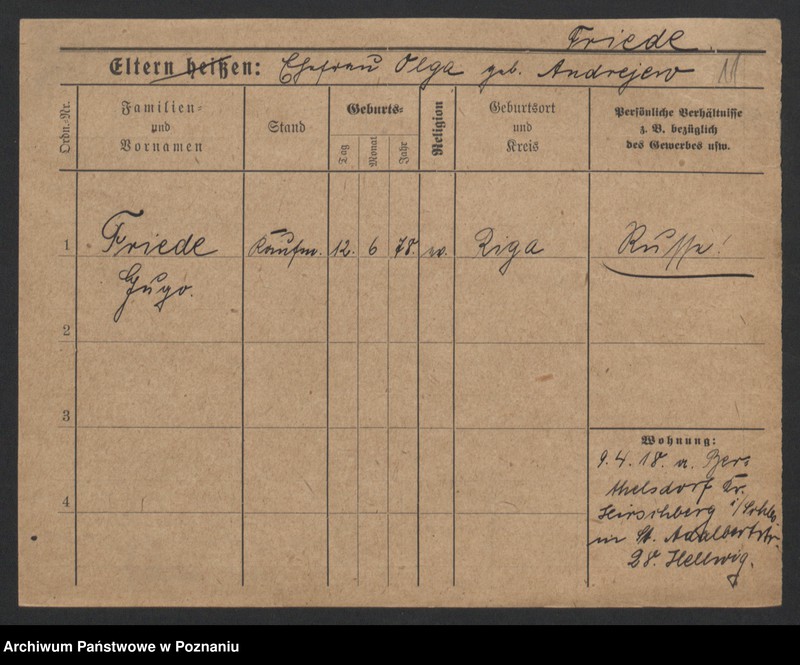 Friede
Eltern heißen: Ehefrau Olga geb. Andrejew 11
Ordn.-Nr.
Familien-
und
Vornamen
Stand
Geburts-
Tag
Monat
Jahr
Religion
Geburtsort
und
Kreis
Persönliche Verhältnisse
z. B. bezüglich
des Gewerbes usw.
1 Friede Kaufm. 12. 6 78. w. Riga Russe!
Hugo.
2
3
4
Wohnung:
9. 4. 18. n. Ber-
thelsdorf Kr.
Hirschberg i/Schles.
in St. Adalbertstr.
28. Hellwig.
Archiwum Państwowe w Poznaniu